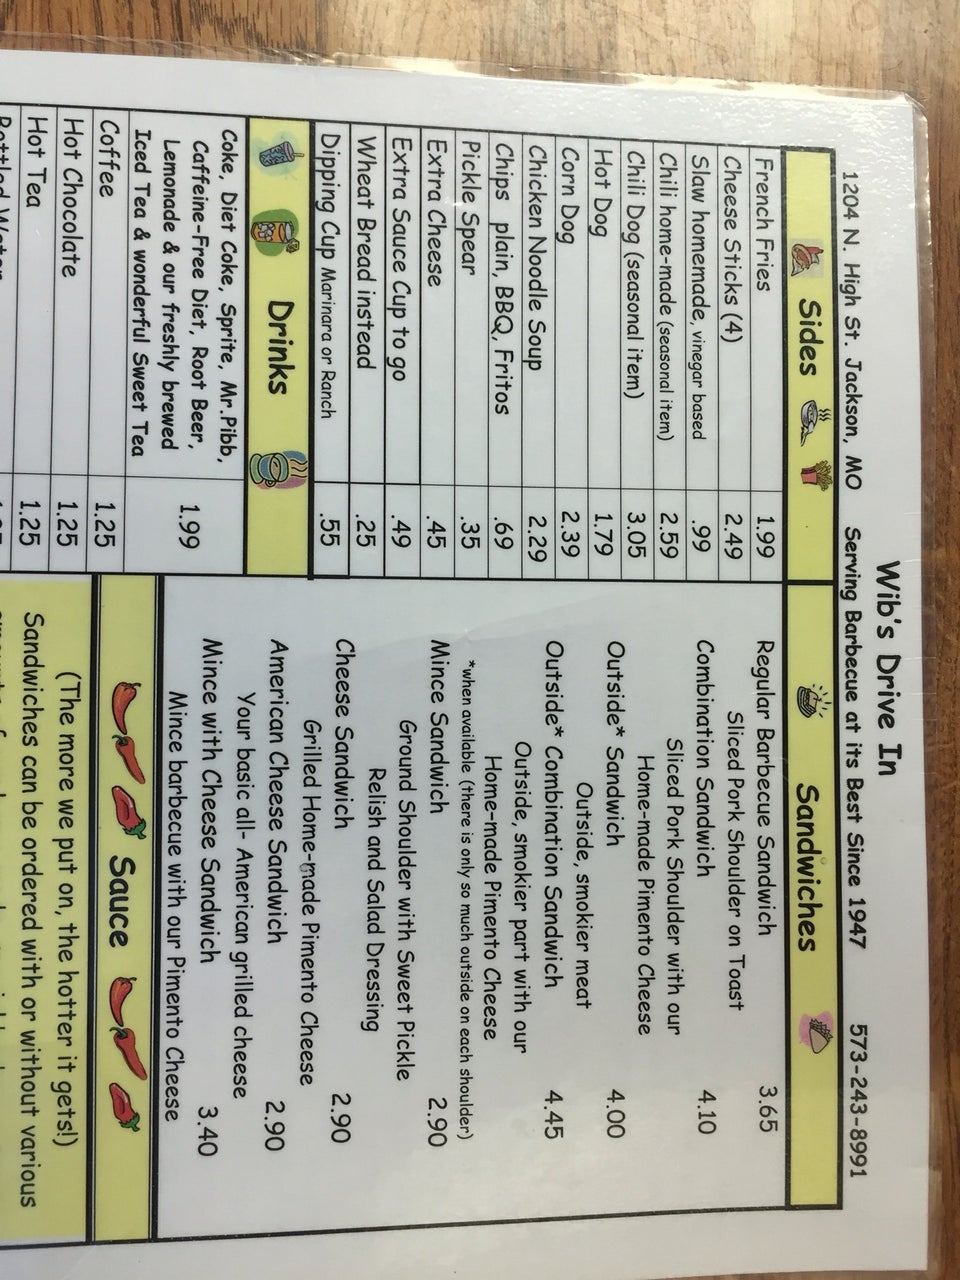 Wib's Drive In
1204 N. High St. Jackson, MO Serving Barbecue at its Best Since 1947 573-243-8991
Sides
French Fries 1.99
Cheese Sticks (4) 2.49
Slaw homemade, vinegar based .99
Chili home-made (seasonal item) 2.59
Chili Dog (seasonal item) 3.05
Hot Dog 1.79
Corn Dog 2.39
Chicken Noodle Soup 2.29
Chips plain, BBQ, Fritos .69
Pickle Spear .35
Extra Cheese .45
Extra Sauce Cup to go .49
Wheat Bread instead .25
Dipping Cup Marinara or Ranch .55
Drinks
Coke, Diet Coke, Sprite, Mr.Pibb,
Caffeine-Free Diet, Root Beer,
Lemonade & our freshly brewed 1.99
Iced Tea & wonderful Sweet Tea
Coffee 1.25
Hot Chocolate 1.25
Hot Tea 1.25
Sandwiches
Regular Barbecue Sandwich 3.65
Sliced Pork Shoulder on Toast
Combination Sandwich 4.10
Sliced Pork Shoulder with our
Home-made Pimento Cheese
Outside* Sandwich 4.00
Outside, smokier meat
Outside* Combination Sandwich 4.45
Outside, smokier part with our
Home-made Pimento Cheese
*when available (there is only so much outside on each shoulder)
Mince Sandwich 2.90
Ground Shoulder with Sweet Pickle
Relish and Salad Dressing
Cheese Sandwich 2.90
Grilled Home-made Pimento Cheese
American Cheese Sandwich 2.90
Your basic all- American grilled cheese
Mince with Cheese Sandwich 3.40
Mince barbecue with our Pimento Cheese
Sauce
(The more we put on, the hotter it gets!)
Sandwiches can be ordered with or without various